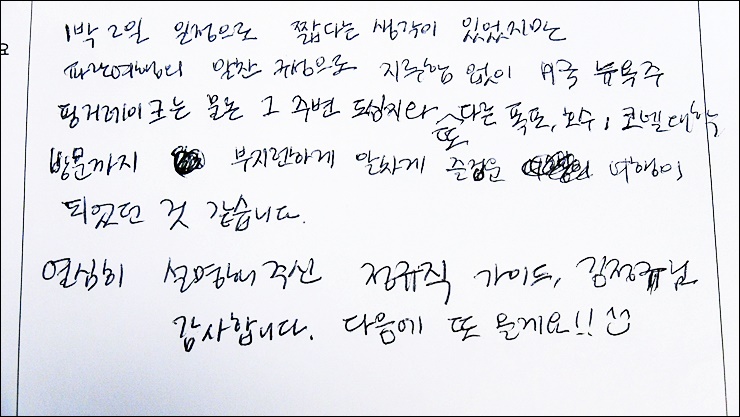 1박 2일 일정으로 짧다는 생각이 있었지만
파란여행의 알찬 구성으로 지루함 없이 미국 뉴욕주
핑거레이크는 물론 그 주변 도심지와 또 다른 폭포, 호수, 코넬대학
방문까지 부지런하게 알차게 즐거운 여행이
되었던 것 같습니다.
열심히 설명해주신 정규직 가이드, 김정규님
감사합니다. 다음에 또 올게요!!